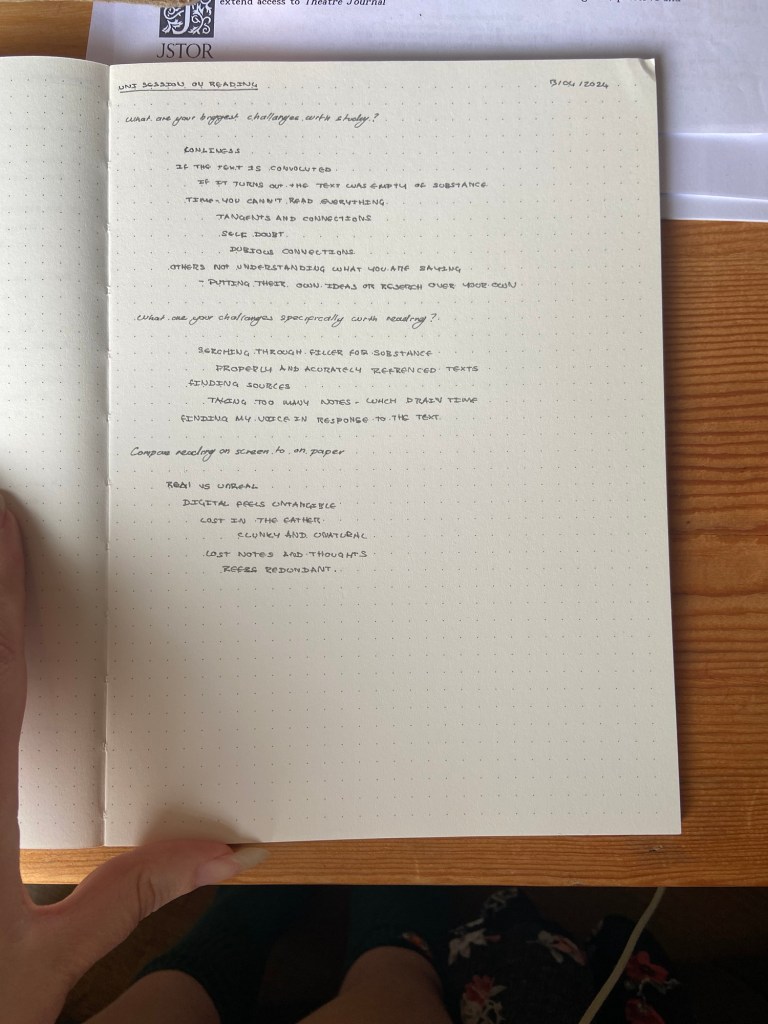 extend access to Theatre Journal
JSTOR
UNI SESSION ON READING 13/04/2024
What are your biggest challanges with study?
IF THE TEXT IS CONVOLUTED
IF IT TURNS OUT THE TEXT WAS EMPTY OF SUBSTANCE
TIME - YOU CANN'T READ EVERYTHING
TANGENTS AND CONNECTIONS
SELF DOUBT
DUBIOUS CONNECTIONS
OTHERS NOT UNDERSTANDING WHAT YOU ARE SAYING
- PUTTING THEIR OWN IDEAS OR RESEARCH OVER YOUR OWN
What are your challanges specifically with reading?
SERCHING THROUGH FILLER FOR SUBSTANCE
PROPERLY AND ACURATELY REFRENCED TEXTS
FINDING SOURCES
TAKING TOO MANY NOTES - WHICH DRAIN TIME
FINDING MY VOICE IN RESPONSE TO THE TEXT
Compare reading on screen to on paper
REAL VS UNREAL
DIGITAL FEELS UNTANGIBLE
LOST IN THE EATHER
CLUNKY AND UNATURAL
LOST NOTES AND THOUGHTS
REDUNDANT.